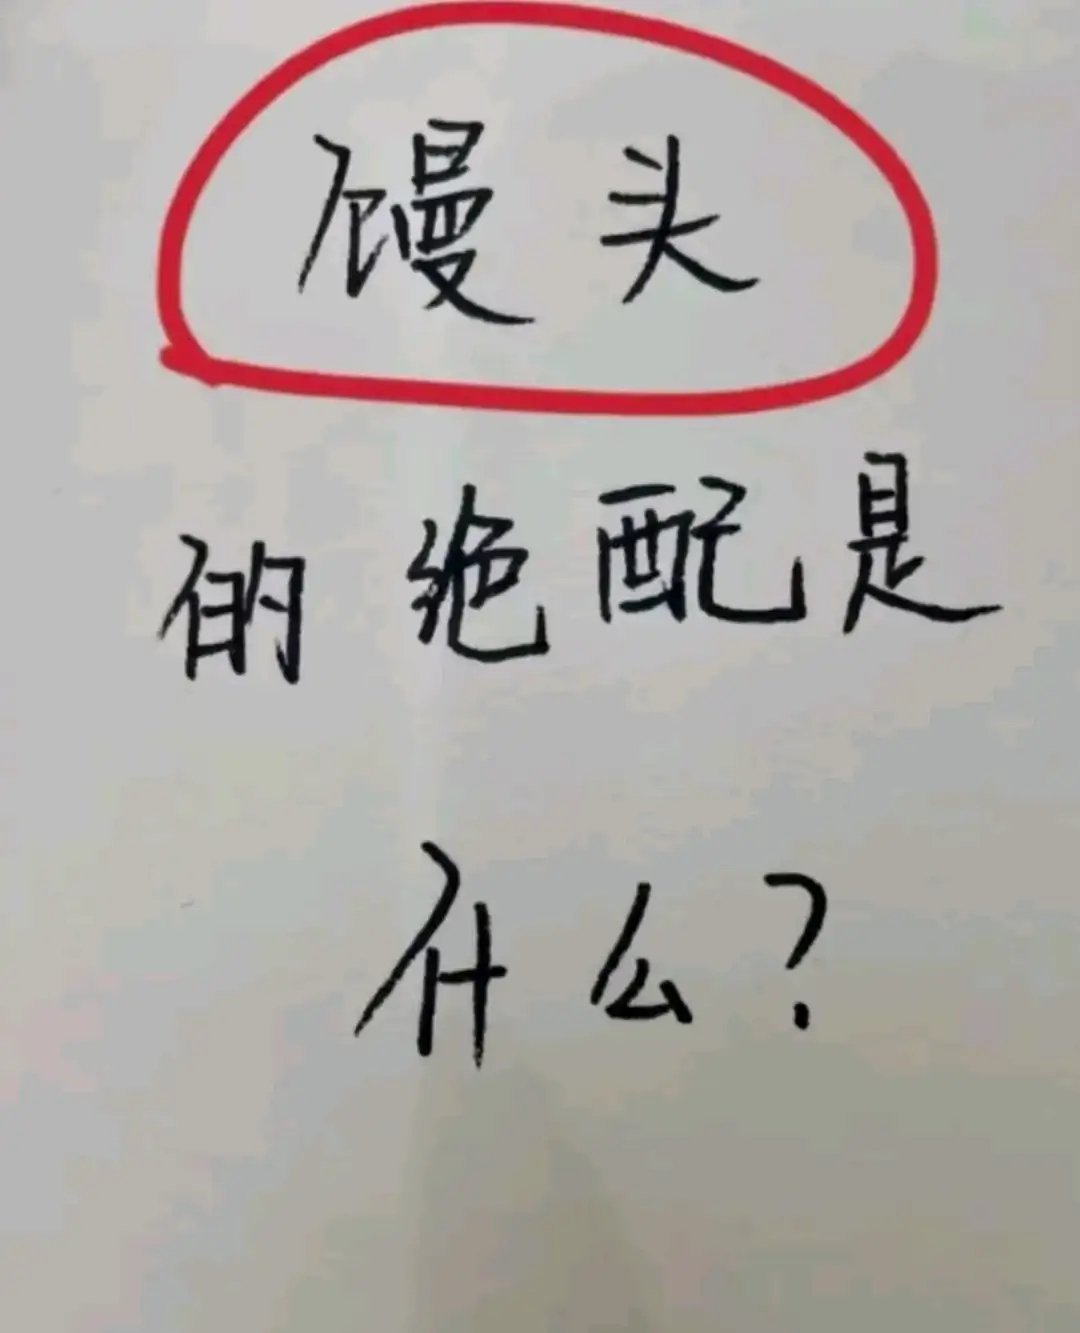 馒头
的绝配是
什么?